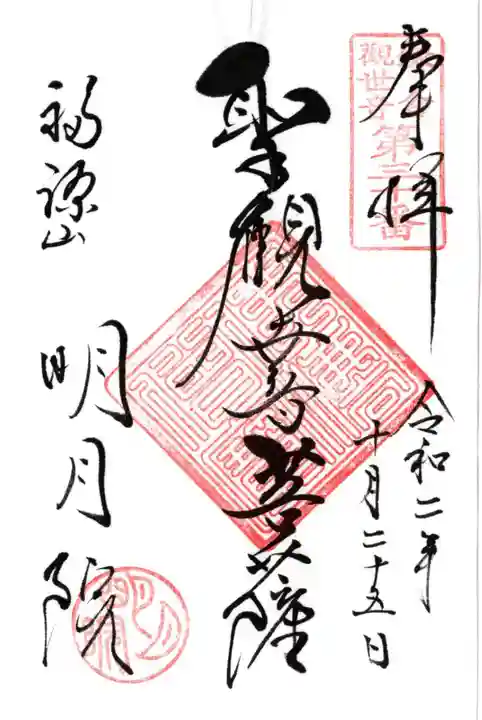 奉拝
令和二年
十月二十五日
聖観世音菩薩
福源山
明月院
觀世音
第三十番